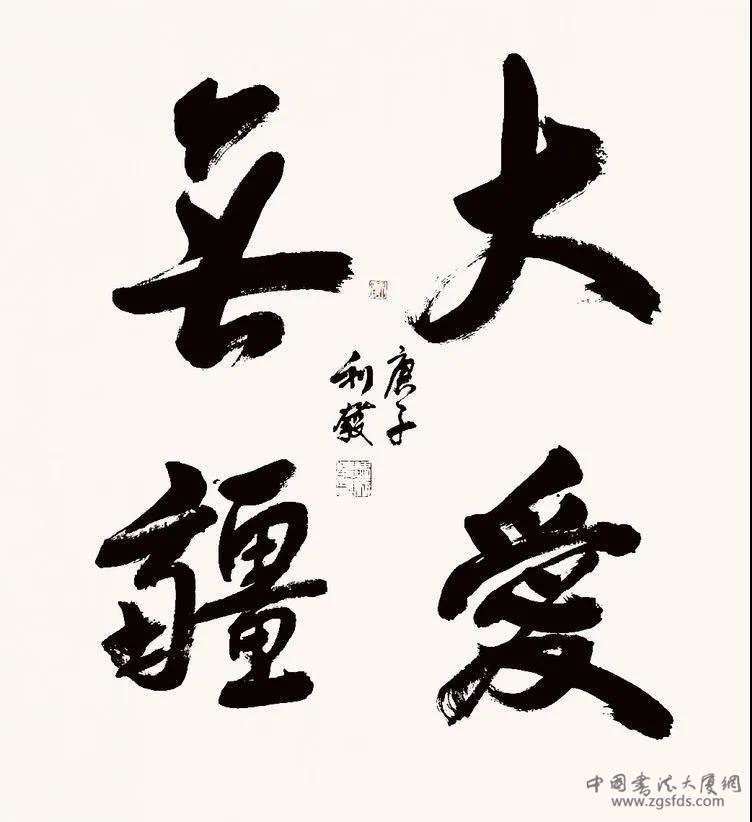 大愛
無疆
庚子
利發
中国书法大厦網
www.zgsfds.com